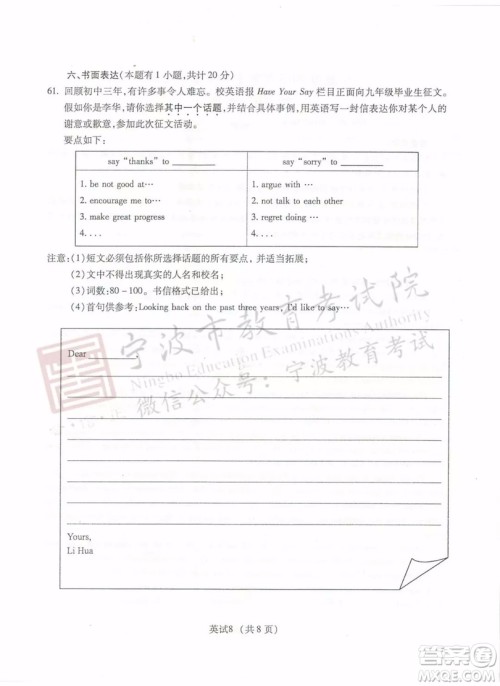 六、书面表达(本题有1小题,共计20分)
61. 回顾初中三年,有许多事令人难忘。校英语报 Have Your Say 栏目正面向九年级毕业生征文。
假如你是李华,请你选择其中一个话题,并结合具体事例,用英语写一封信表达你对某个人的
谢意或歉意,参加此次征文活动。
要点如下:
say “thanks” to ________
say “sorry” to ________
1. be not good at…
1. argue with …
2. encourage me to …
2. not talk to each other
3. make great progress
3. regret doing …
4. . . .
4. . . .
注意:(1)短文必须包括你所选择话题的所有要点,并适当拓展;
(2)文中不得出现真实的人名和校名;
(3)词数:80－100。书信格式已给出;
(4)首句供参考:Looking back on the past three years, I'd like to say…
宁波市教育考试院
Ningbo Education Examinations Authority
微信公众号:宁波教育考试
Dear ________,
Yours,
Li Hua
英试8 (共8页)
答案圈
MXQE.COM